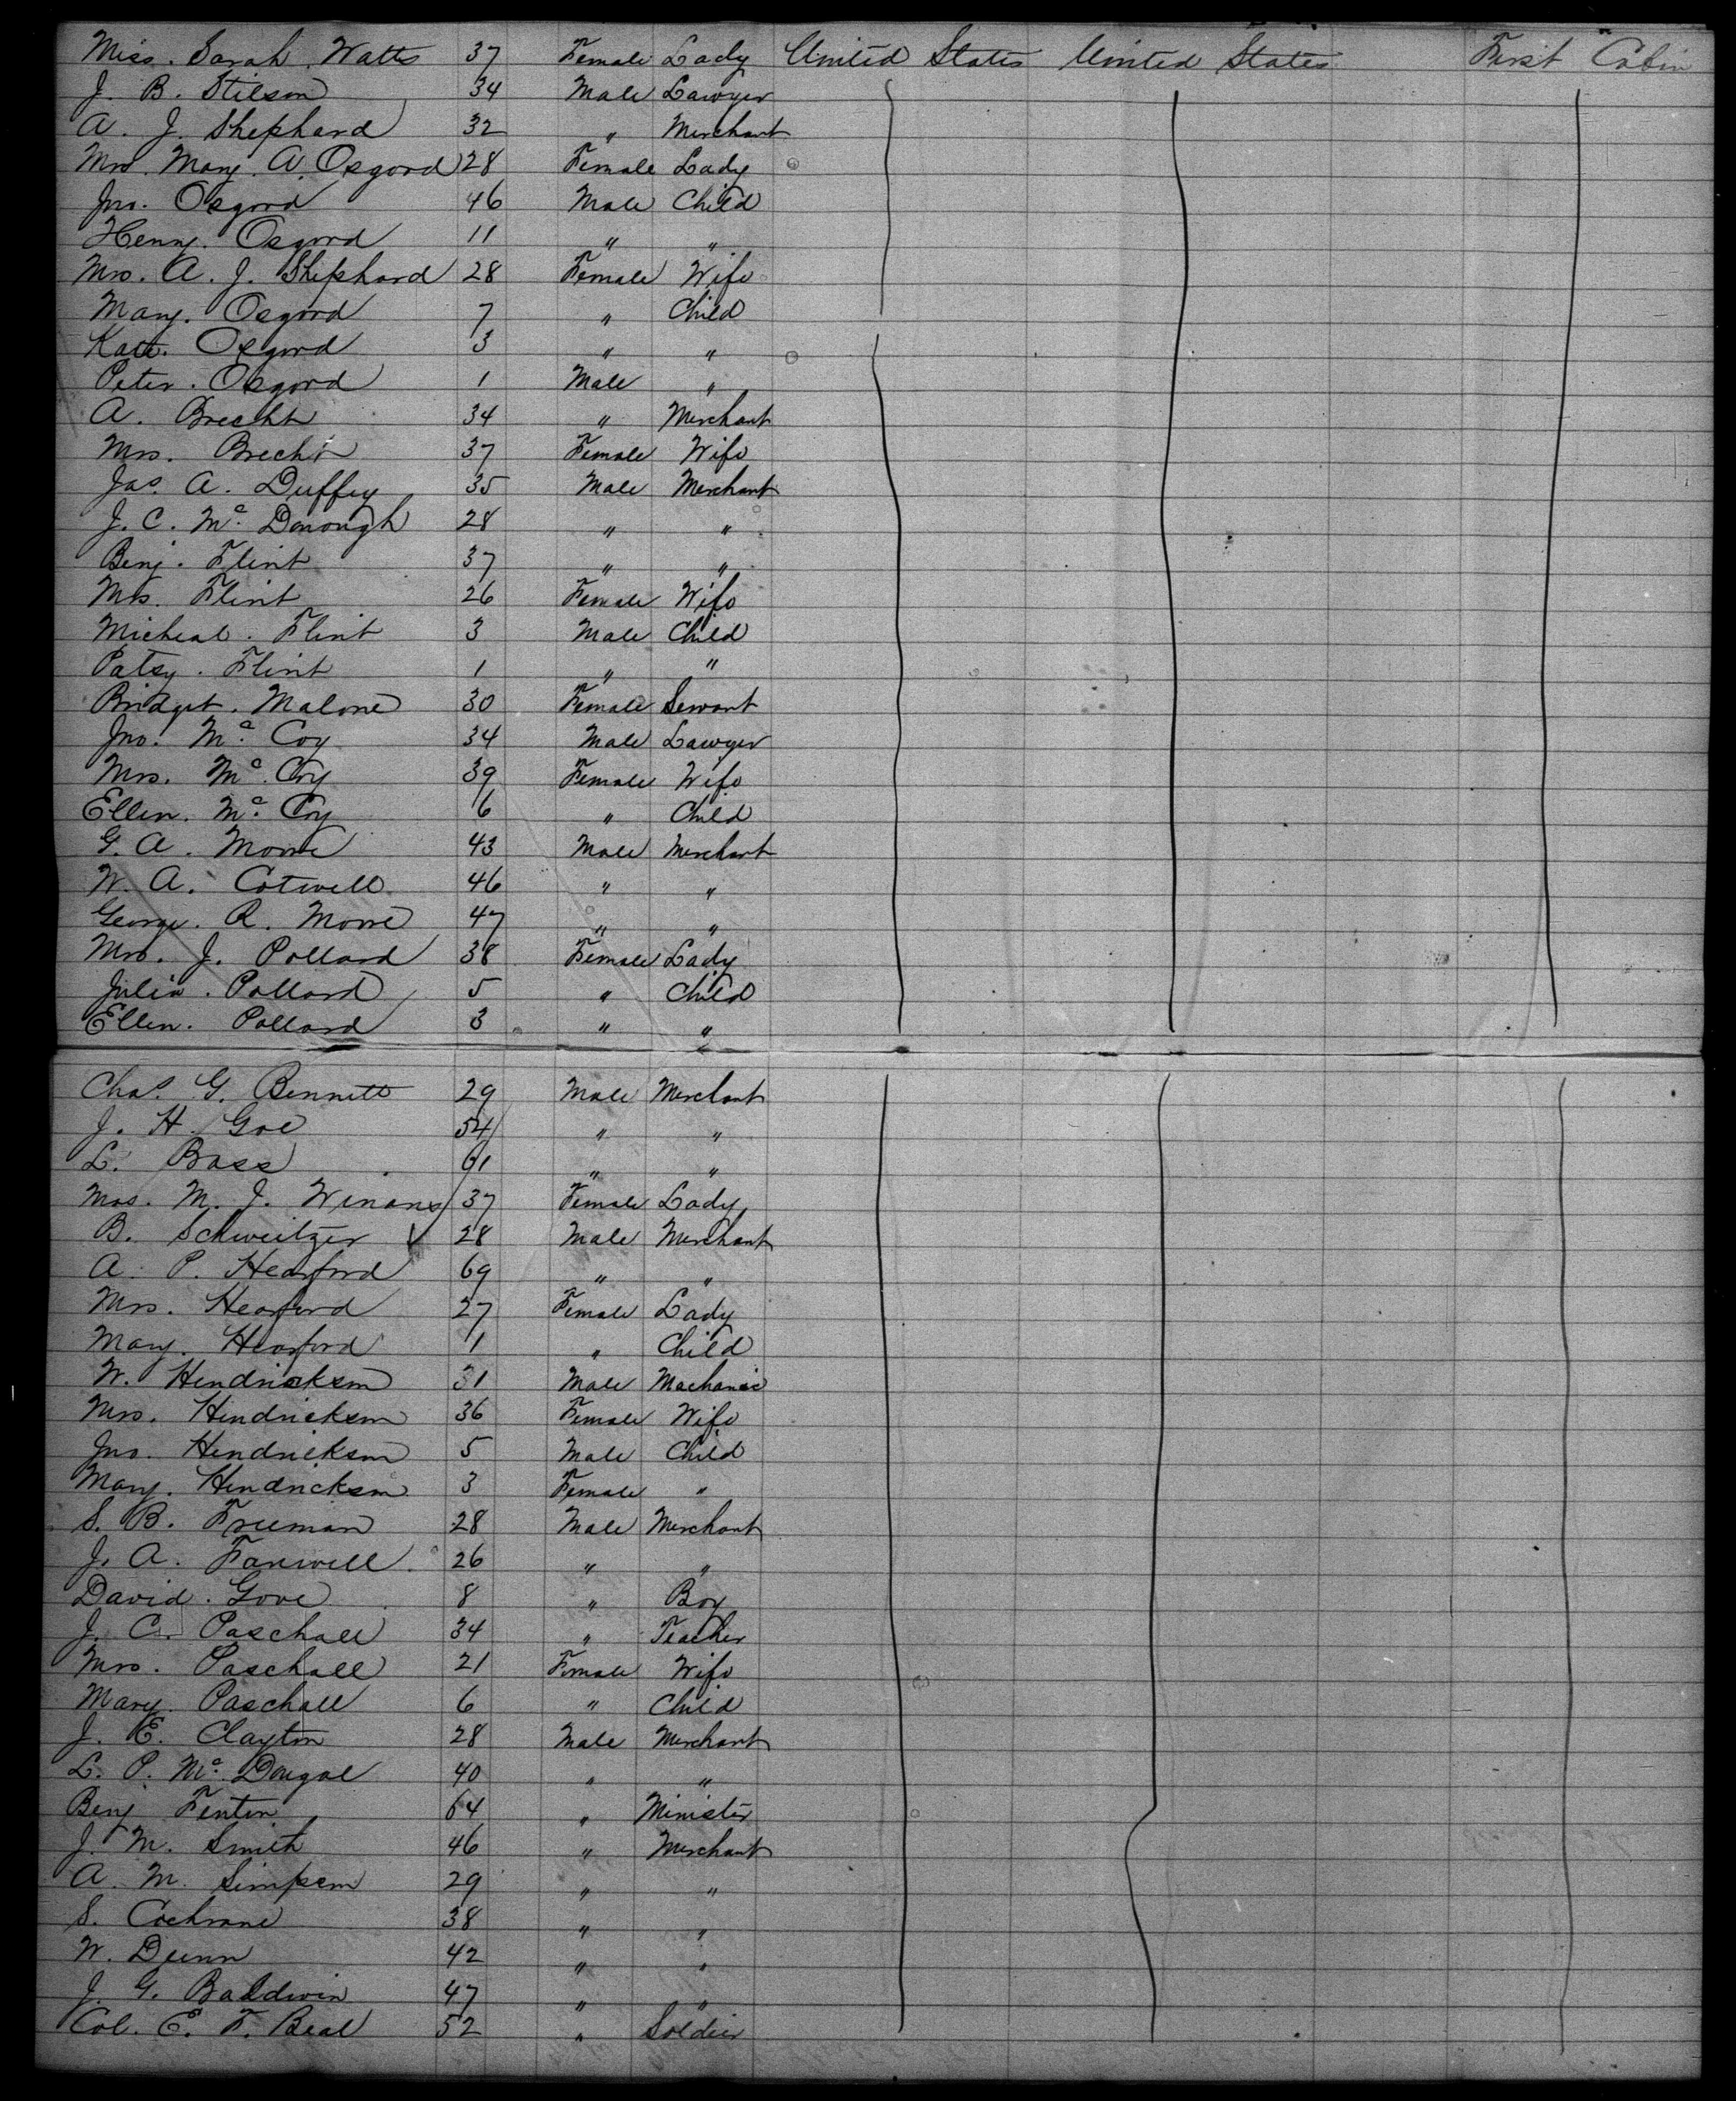 Miss. Sarah. Watts 37 Female Lady United States United States First Cabin
J. B. Stilson 34 Male Lawyer
A. J. Shephard 32 " Merchant
Mrs. Mary. A. Osgood 28 Female Lady
Jno. Osgood 46 Male Child
Henry. Osgood 11 " "
Mrs. A. J. Shephard 28 Female Wife
Mary. Osgood 7 " Child
Kate. Osgood 3 " "
Peter. Osgood 1 Male "
A. Brecht 34 " Merchant
Mrs. Brecht 37 Female Wife
Jas. A. Duffey 35 Male Merchant
J. C. Mc. Donough 28 " "
Benj. Flint 37 " "
Mrs. Flint 26 Female Wife
Micheal. Flint 3 Male Child
Patsy. Flint 1 " "
Bridget. Malone 30 Female Servant
Jno. Mc. Coy 34 Male Lawyer
Mrs. Mc. Coy 39 Female Wife
Ellen. Mc. Coy 6 " Child
G. A. Morre 43 Male Merchant
W. A. Cotwell 46 " "
George. R. Morre 47 " "
Mrs. J. Pollard 38 Female Lady
Julia. Pollard 5 " Child
Ellen. Pollard 3 " "
Chas. G. Bennett 29 Male Merchant
J. H. Goe 54 " "
L. Bass 61 " "
Mrs. M. J. Winans 37 Female Lady
B. Schweitzer 28 Male Merchant
A. P. Hearford 69 " "
Mrs. Hearford 27 Female Lady
Mary. Hearford 1 " Child
W. Hendrickson 31 Male Machanic
Mrs. Hendrickson 36 Female Wife
Jno. Hendrickson 5 Male Child
Mary. Hendrickson 3 Female "
S. B. Freeman 28 Male Merchant
J. A. Farwell 26 " "
David. Gove 8 " Boy
J. C. Paschall 34 " Teacher
Mrs. Paschall 21 Female Wife
Mary. Paschall 6 " Child
J. E. Clayton 28 Male Merchant
L. P. Mc. Dougal 40 " "
Benj Fenton 64 " Minister
J. M. Smith 46 " Merchant
A. M. Simpson 29 " "
S. Cochrane 38 " "
W. Dunn 42 " "
J. G. Baldwin 47 " "
Col. E. F. Beal 52 " Soldier